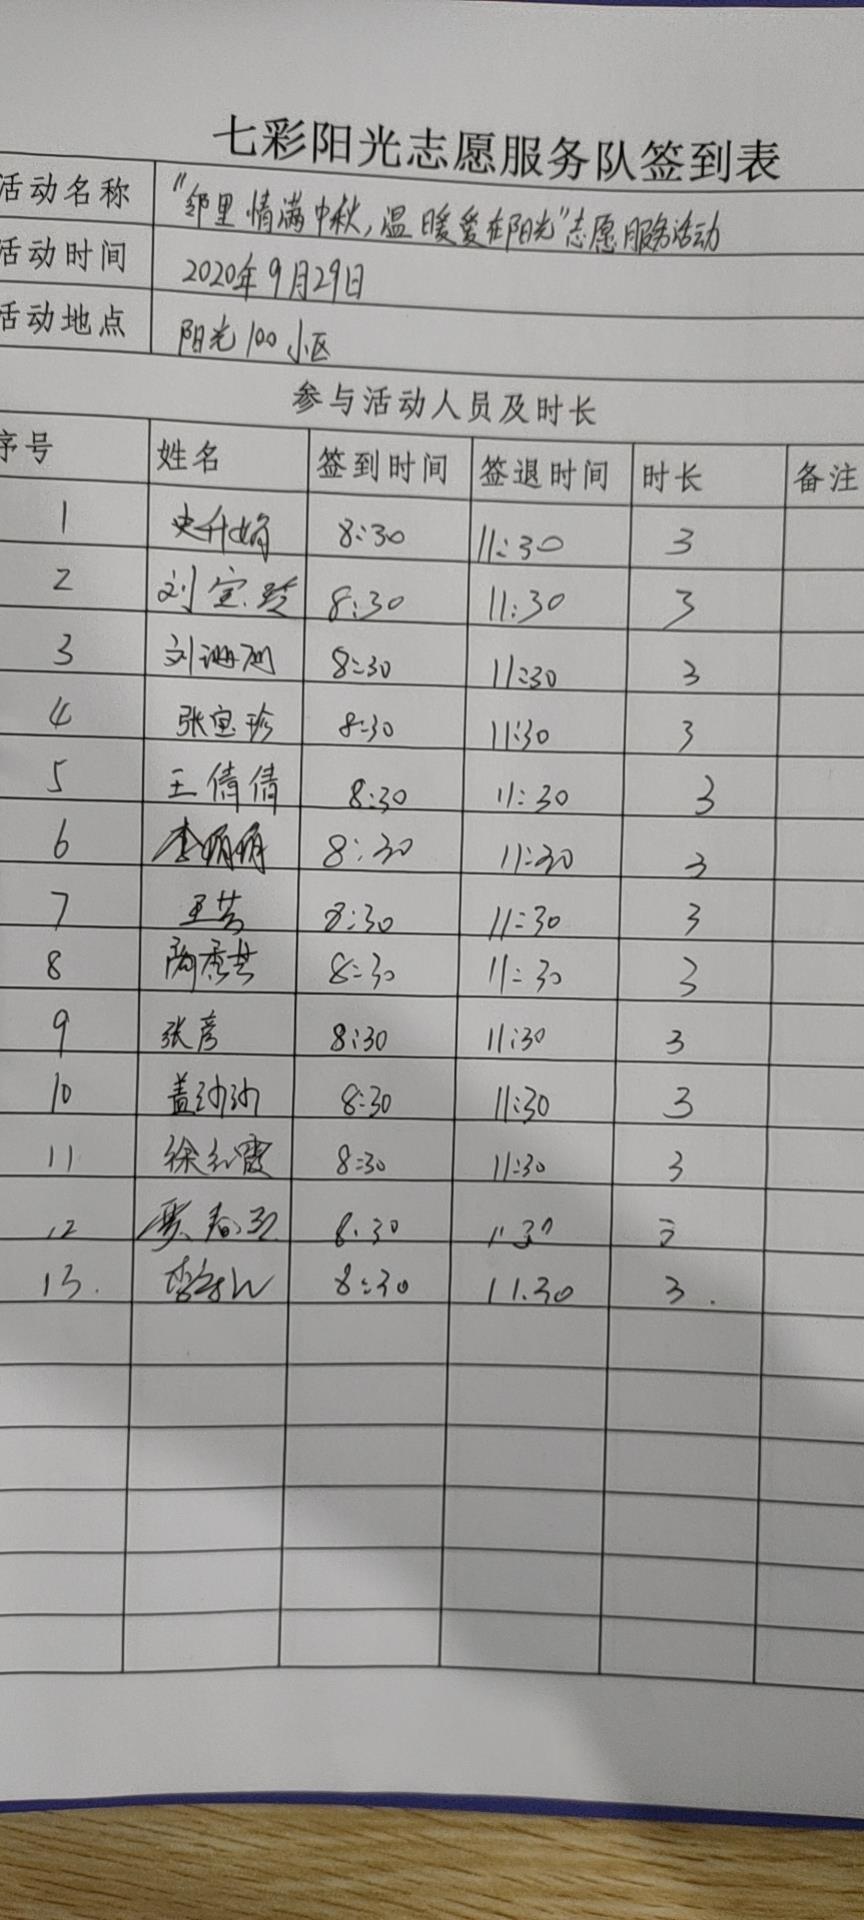 七彩阳光志愿服务队签到表
活动名称 "邻里情满中秋,温暖爱在阳光"志愿服务活动
活动时间 2020年9月29日
活动地点 阳光100小区
参与活动人员及时长
序号 姓名 签到时间 签退时间 时长 备注
1 史升娟 8:30 11:30 3
2 刘宝玲 8:30 11:30 3
3 刘 8:30 11:30 3
4 张宝珍 8:30 11:30 3
5 王倩倩 8:30 11:30 3
6 李娟娟 8:30 11:30 3
7 王芸 8:30 11:30 3
8 陶秀芸 8:30 11:30 3
9 张彦 8:30 11:30 3
10 盖沙沙 8:30 11:30 3
11 徐红霞 8:30 11:30 3
12 8.30 11 30 3
13. 8:30 11.30 3.